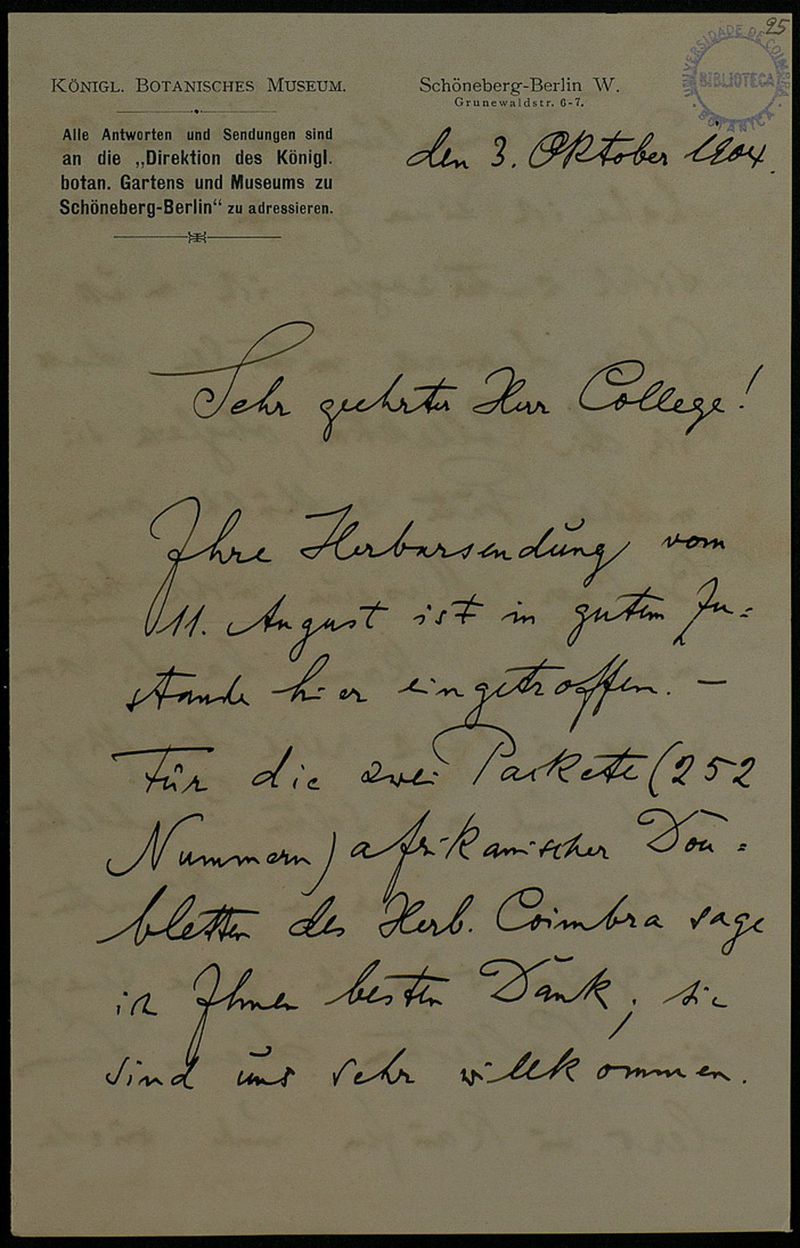 25
UNIVERSIDADE DE COIMBRA
BIBLIOTECA
BOTANICA
KÖNIGL. BOTANISCHES MUSEUM.
Alle Antworten und Sendungen sind
an die „Direktion des Königl.
botan. Gartens und Museums zu
Schöneberg-Berlin“ zu adressieren.
Schöneberg-Berlin W.
Grunewaldstr. 6-7.
den 3. Oktober 1904.
Sehr geehrter Herr College!
Ihre Herbarsendung vom
11. August ist in gutem Zu=
stande hier eingetroffen. —
Für die zwei Packete (252
Nummern) afrikanischer Dou=
bletten des Herb. Coimbra sage
ich Ihnen besten Dank; sie
sind uns sehr willkommen.